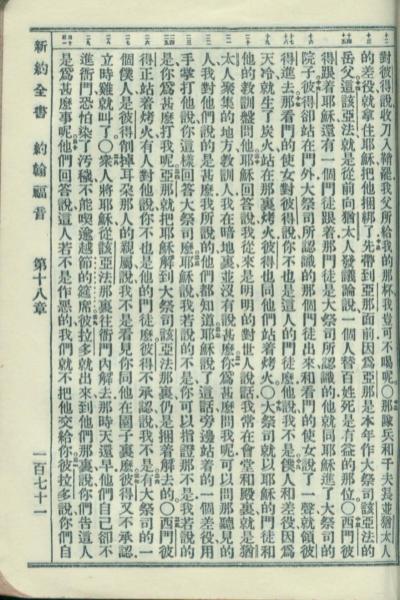 對彼得說收刀入鞘罷我父所給我的那杯我豈可不喝呢〇那隊兵和千夫長並猶太人
的差役就拿住耶穌把他捆綁了先帶到亞那面前因爲亞那是本年作大祭司該亞法的
岳父這該亞法就是從前向猶太人發議論說一個人替百姓死是有益的那位〇西門彼
得跟着耶穌還有一個門徒跟着那門徒是大祭司所認識的他就同耶穌進了大祭司的
院子彼得卻站在門外大祭司所認識的那個門徒出來和看門的使女說了一聲就領彼
得進去那看門的使女對彼得說你不也是這人的門徒麼他說我不是僕人和差役因爲
天冷就生了炭火站在那裏烤火彼得也同他們站着烤火〇大祭司就以耶穌的門徒和
他的教訓盤問他耶穌回答說我從來是明明的對世人說話我常在會堂和殿裏就是猶
太人聚集的地方教訓人我在暗地裏並沒有說甚麼你爲甚麼問我呢可以問那聽見的
人我對他們說的是甚麼我所說的他們都知道耶穌說了這話旁邊站着的一個差役用
手掌打他說你這樣回答大祭司麼耶穌說我若說的不是你可以指證那不是我若說的
是你爲甚麼打我呢亞那就把耶穌解到大祭司該亞法那裏仍是捆着解去的〇西門彼
得正站着烤火有人對他說你不也是他的門徒麼彼得不承認說我不是有大祭司的一
個僕人是彼得削掉耳朵那人的親屬說我不是看見你同他在園子裏麼彼得又不承認
立時雞就叫了〇衆人將耶穌從該亞法那裏往衙門內解去那時天還早他們自己卻不
進衙門恐怕染了汚穢不能喫逾越節的筵席彼拉多就出來到他們那裏說你們告這人
是爲甚麼事呢他們回答說這人若不是作惡的我們就不把他交給你彼拉多說你們自
新約全書 約翰福音 第十八章 一百七十一